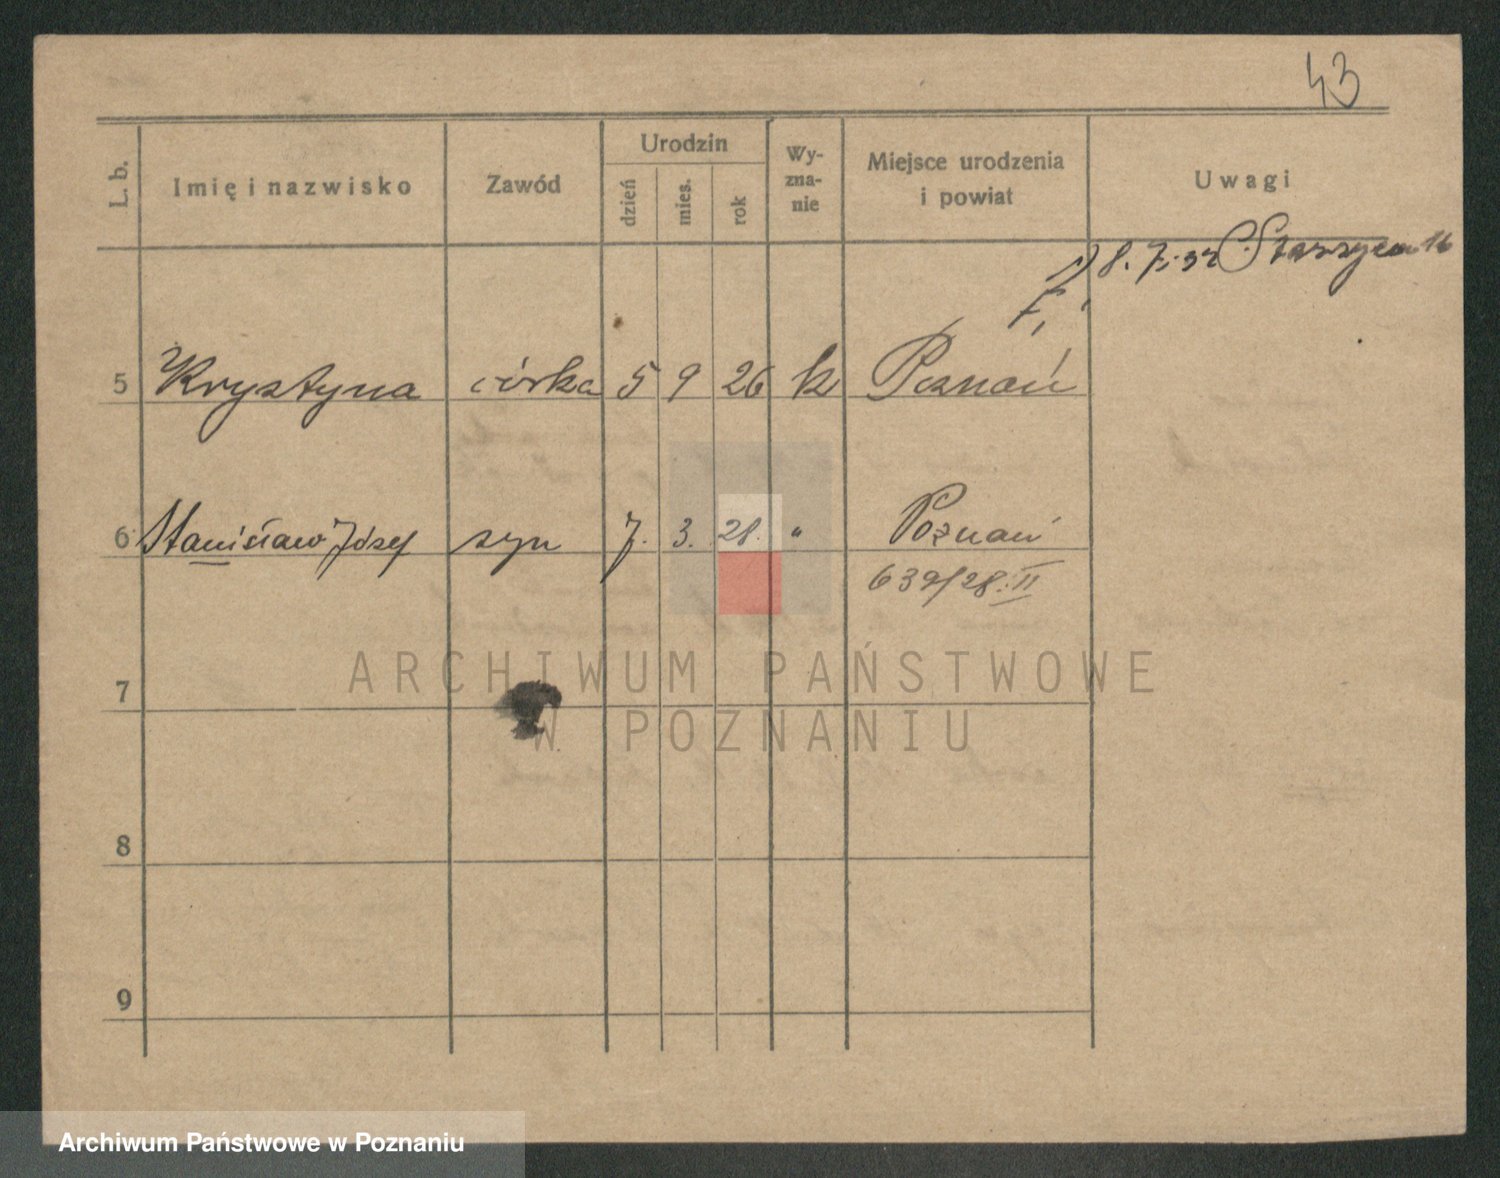 43
L. b. Imię i nazwisko Zawód Urodzin dzień mies. rok Wy-zna-nie Miejsce urodzenia i powiat Uwagi
8. 7. 32
5 Krystyna córka 5 9 26 k Poznań
6 Stanisław Józef syn 7. 3. 28. " Poznań
639/28. II
7
ARCHIWUM PAŃSTWOWE
W POZNANIU
8
9
Archiwum Państwowe w Poznaniu